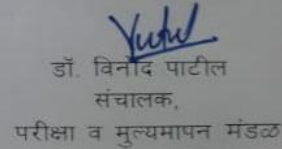 डॉ. विनोद पाटील
संचालक,
परीक्षा व मुल्यमापन मंडळ